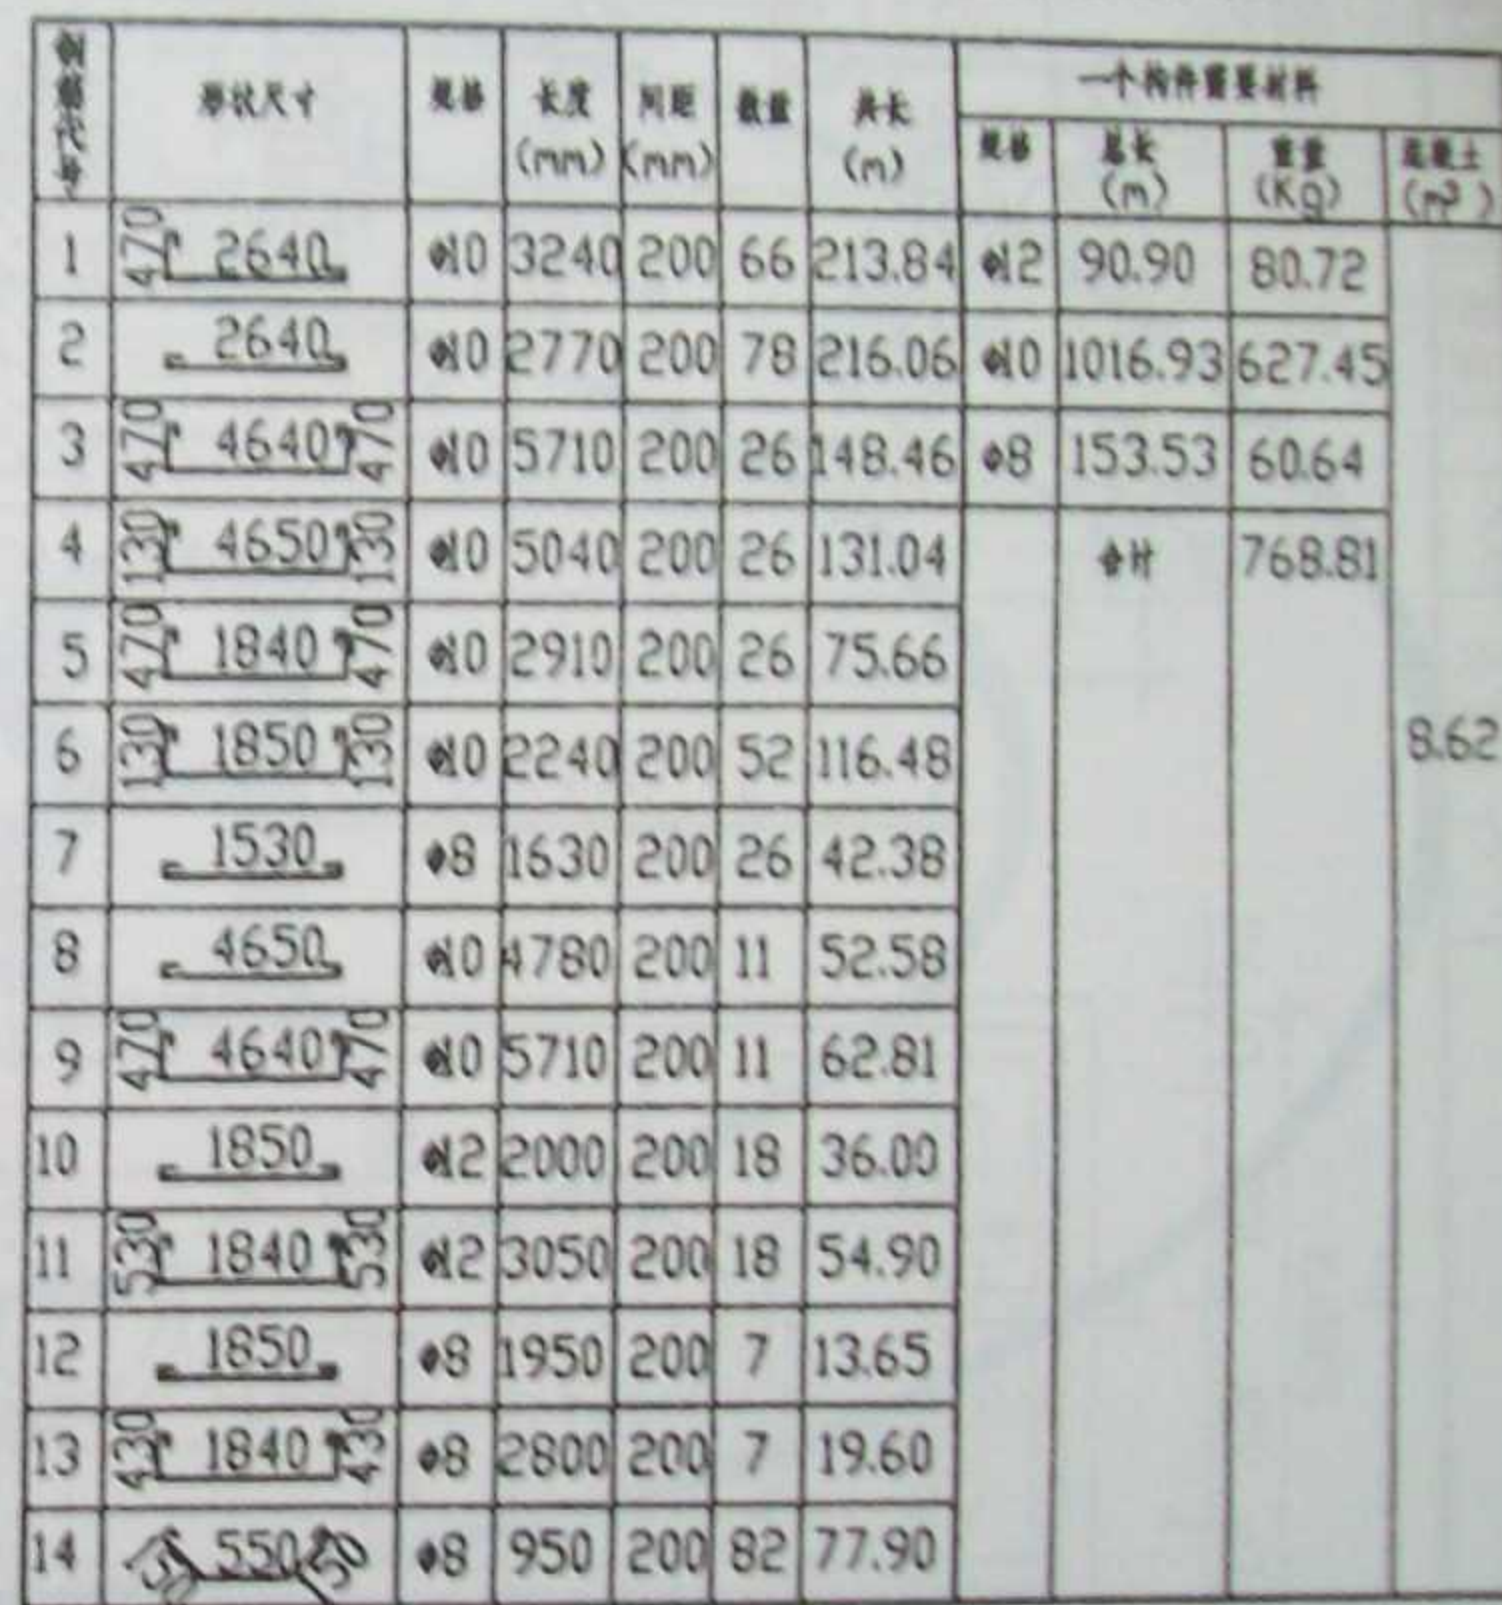 钢筋代号 形状尺寸 规格 长度(mm) 间距(mm) 数量 共长(m) 一个构件需要材料
规格 总长(m) 重量(Kg) 混凝土(m³)
1 470 2640 φ10 3240 200 66 213.84 φ12 90.90 80.72
2 2640 φ10 2770 200 78 216.06 φ10 1016.93 627.45
3 470 4640 470 φ10 5710 200 26 148.46 φ8 153.53 60.64
4 130 4650 130 φ10 5040 200 26 131.04 合计 768.81
5 470 1840 470 φ10 2910 200 26 75.66
6 130 1850 130 φ10 2240 200 52 116.48 8.62
7 1530 φ8 1630 200 26 42.38
8 4650 φ10 4780 200 11 52.58
9 470 4640 470 φ10 5710 200 11 62.81
10 1850 φ12 2000 200 18 36.00
11 530 1840 530 φ12 3050 200 18 54.90
12 1850 φ8 1950 200 7 13.65
13 430 1840 430 φ8 2800 200 7 19.60
14 550 φ8 950 200 82 77.90